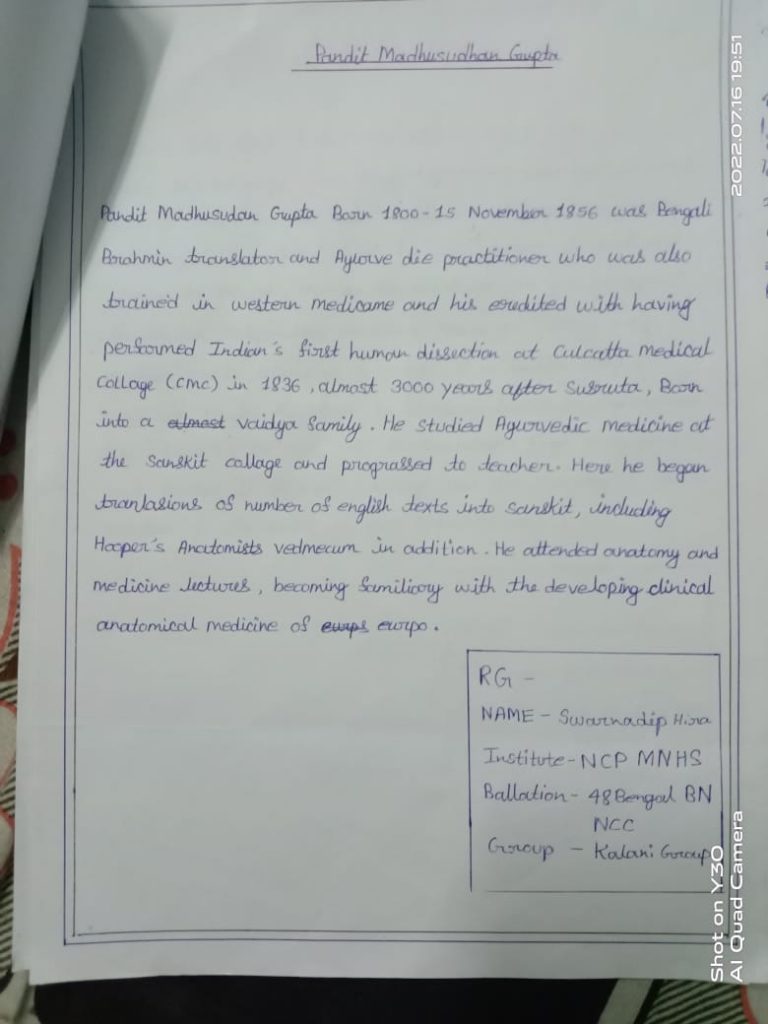 Pandit Madhusudhan Gupta
Pandit Madhusudan Gupta Born 1800-15 November 1856 was Bengali
Brahmin translator and Aylorve die practitioner who was also
trained in western medicame and his eredited with having
performed Indian's first human dissection at Culcatta medical
Collage (CMC) in 1836, almost 3000 years after Susruta, Born
into a almost vaidya family. He studied Ayurvedic medicine at
the Sanskit collage and prograssed to teacher. Here he began
tranlasions of number of english texts into sanskit, including
Hooper's Anatomists vedmecum in addition. He attended anatomy and
medicine lectures, becoming familiary with the developing clinical
anatomical medicine of eurps eurpo.
RG -
NAME - Swarnadip Hira
Institute - NCP MNHS
Ballation - 48 Bengal BN
NCC
Group - Kalani Group
2022.07.16 19:51
Shot on Y30
AI Quad Camera